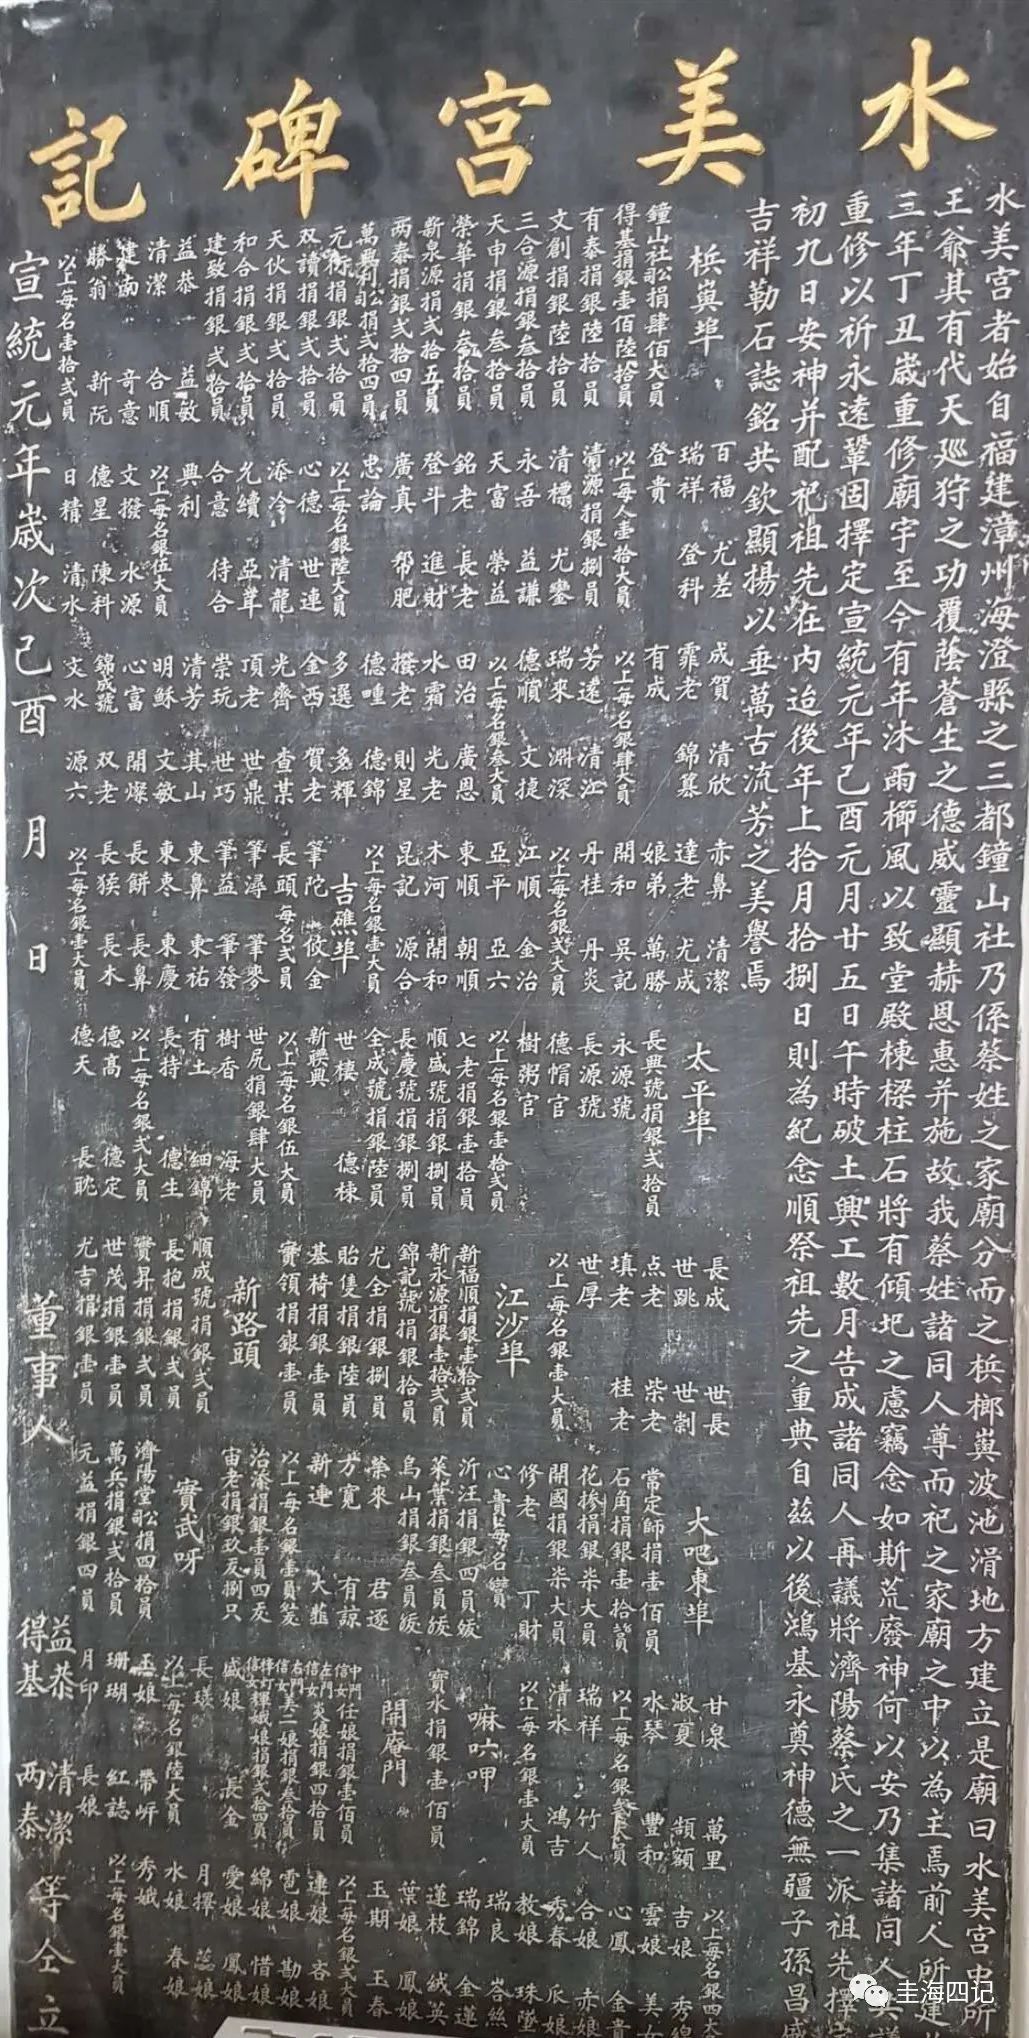 水美宮碑記
水美宮者始自福建漳州海澄縣之三都鐘山社乃係蔡姓之家廟分而之梹榔嶼波池滑地方建立是廟曰水美宮中所
王爺其有代天廵狩之功覆蔭蒼生之德威靈顯赫恩惠并施故我蔡姓諸同人尊而祀之家廟之中以為主焉前人所建
三年丁丑歲重修廟宇至今有年沐雨櫛風以致堂殿棟樑柱石將有傾圯之慮竊念如斯荒廢神何以安乃集諸同人
重修以祈永遠鞏固擇定宣統元年己酉元月廿五日午時破土興工數月告成諸同人再議將濟陽蔡氏之一派祖先擇
初九日安神并配祀祖先在內迨後年上拾月拾捌日則為紀念順祭祖先之重典自茲以後鴻基永奠神德無疆子孫昌盛
吉祥勒石誌銘共欽顯揚以垂萬古流芳之美譽焉
梹嶼埠
鐘山社公捐肆佰大員
得基捐銀壹佰陸拾員
有泰捐銀陸拾員
文創捐銀陸拾員
三合源捐銀叁拾員
天申捐銀叁拾員
榮華捐銀叁拾員
新泉源捐弍拾五員
两泰捐銀弍拾四員
萬興利公捐弍拾四員
捐銀弍拾員
双讀捐銀弍拾員
天伙捐銀弍拾員
和合捐銀弍拾員
建致捐銀弍拾員
益恭 益敏
清潔 合順
奇意
勝翁 新阮
以上每名壹拾弍員
百福 尤差
瑞祥 登科
登貴
以上每人壹拾大員
清源捐銀捌員
清標 尤鑾
永吾 益謙
天富 榮益
銘老 長老
登斗 進財
廣真 幫肥
忠論
以上每名銀陸大員
心德 世連
添冷 清龍
光續
合意 待合
興利
以上每名銀伍大員
文撥 水源
德星 陳科
日精 清水
成賀 清欣
霏老 錦篡
有成
以上每名銀肆大員
芳遠 清江
瑞來 淵深
德順 文捷
以上每名銀叁大員
田治 廣恩
水霜 光老
撥老 則星
德喠 德錦
多選 多輝
金西 賀老
光齊 查某
頂老 世鼎
崇玩 世巧
清芳 其山
明穌 文敏
心富 開燦
錦成號 双老
文水 源六
赤鼻 清潔
達老 尤成
娘弟 萬勝
開和 吳記
丹桂 丹炎
以上每名銀弍大員
江順 金治
亞平 亞六
東順 朝順
木河 開和
昆記 源合
以上每名銀壹大員
吉礁埠
筆陀 攸金
長頭每名弍員
筆潯 筆麥
筆益 筆發
東鼻 東祐
東枣 東慶
長餅 長鼻
長猴 長木
以上每名銀壹大員
太平埠
長興號捐銀弍拾員
永源號
長源號
德帽官
樹粥官
以上每名銀壹拾弍員
七老捐銀壹拾員
順盛號捐銀捌員
長慶號捐銀捌員
全成號捐銀陸員
世樓 德棟
新聯興
以上每名銀伍大員
世尻捐銀肆大員
樹香 海老
有土 細錦
長持 德生
以上每名銀弍大員
德高 德定
德天 長耽
長成 世長
世跳 世剬
点老 柴老
填老 桂老
世厚
以上每名銀壹大員
江沙埠
新福順捐銀壹拾弍員
新永源捐銀壹拾弍員
錦記號捐銀拾員
尤全捐銀捌員
貽隻捐銀陸員
基椅捐銀壹員
實領捐銀壹員
新路頭
順成號捐銀弍員
長抱捐銀弍員
實昇捐銀弍員
世茂捐銀壹員
尤吉捐銀壹員
大吧東埠
常定師捐壹佰員
石角捐銀壹拾員
花掺捐銀柒大員
開國捐銀柒大員
修老 丁財
沂汪捐銀四員
萊葉捐銀叁員
烏山捐銀叁員
榮來 君逐
方寬 有諒
新連
實武呀
濟陽堂公捐四拾員
萬兵捐銀弍拾員
元益捐銀四員
甘泉 萬里
淑夏 頡額
水琴 豐和
瑞祥 竹人
清水 鴻吉
以上每名銀壹大員
嘛吙呷
實水捐銀壹佰員
開庵門
中門信女任娘捐銀壹佰員
左門信女炎娘捐銀四拾員
右門信女美二娘捐銀叁拾員
盛娘 長金
長瑛
以上每名銀陸大員
玉娘
珊瑚 紅誌
月印 長娘
以上每名銀四大員
吉娘
雲娘
心鳳 金貴
合娘 赤娘
秀春 爪娘
教娘 珠墜
瑞良
瑞錦 金蓮
蓮枝 絨英
葉娘 鳳娘
玉期 玉春
以上每名銀弍大員
連娘
雹娘 勘娘
綿娘 惜娘
愛娘 鳳娘
月擇 蕊娘
水娘 春娘
秀娥
以上每名銀壹大員
宣統元年歲次己酉 月 日 董事人 益恭 得基 清潔 两泰 等仝立
圭海四记